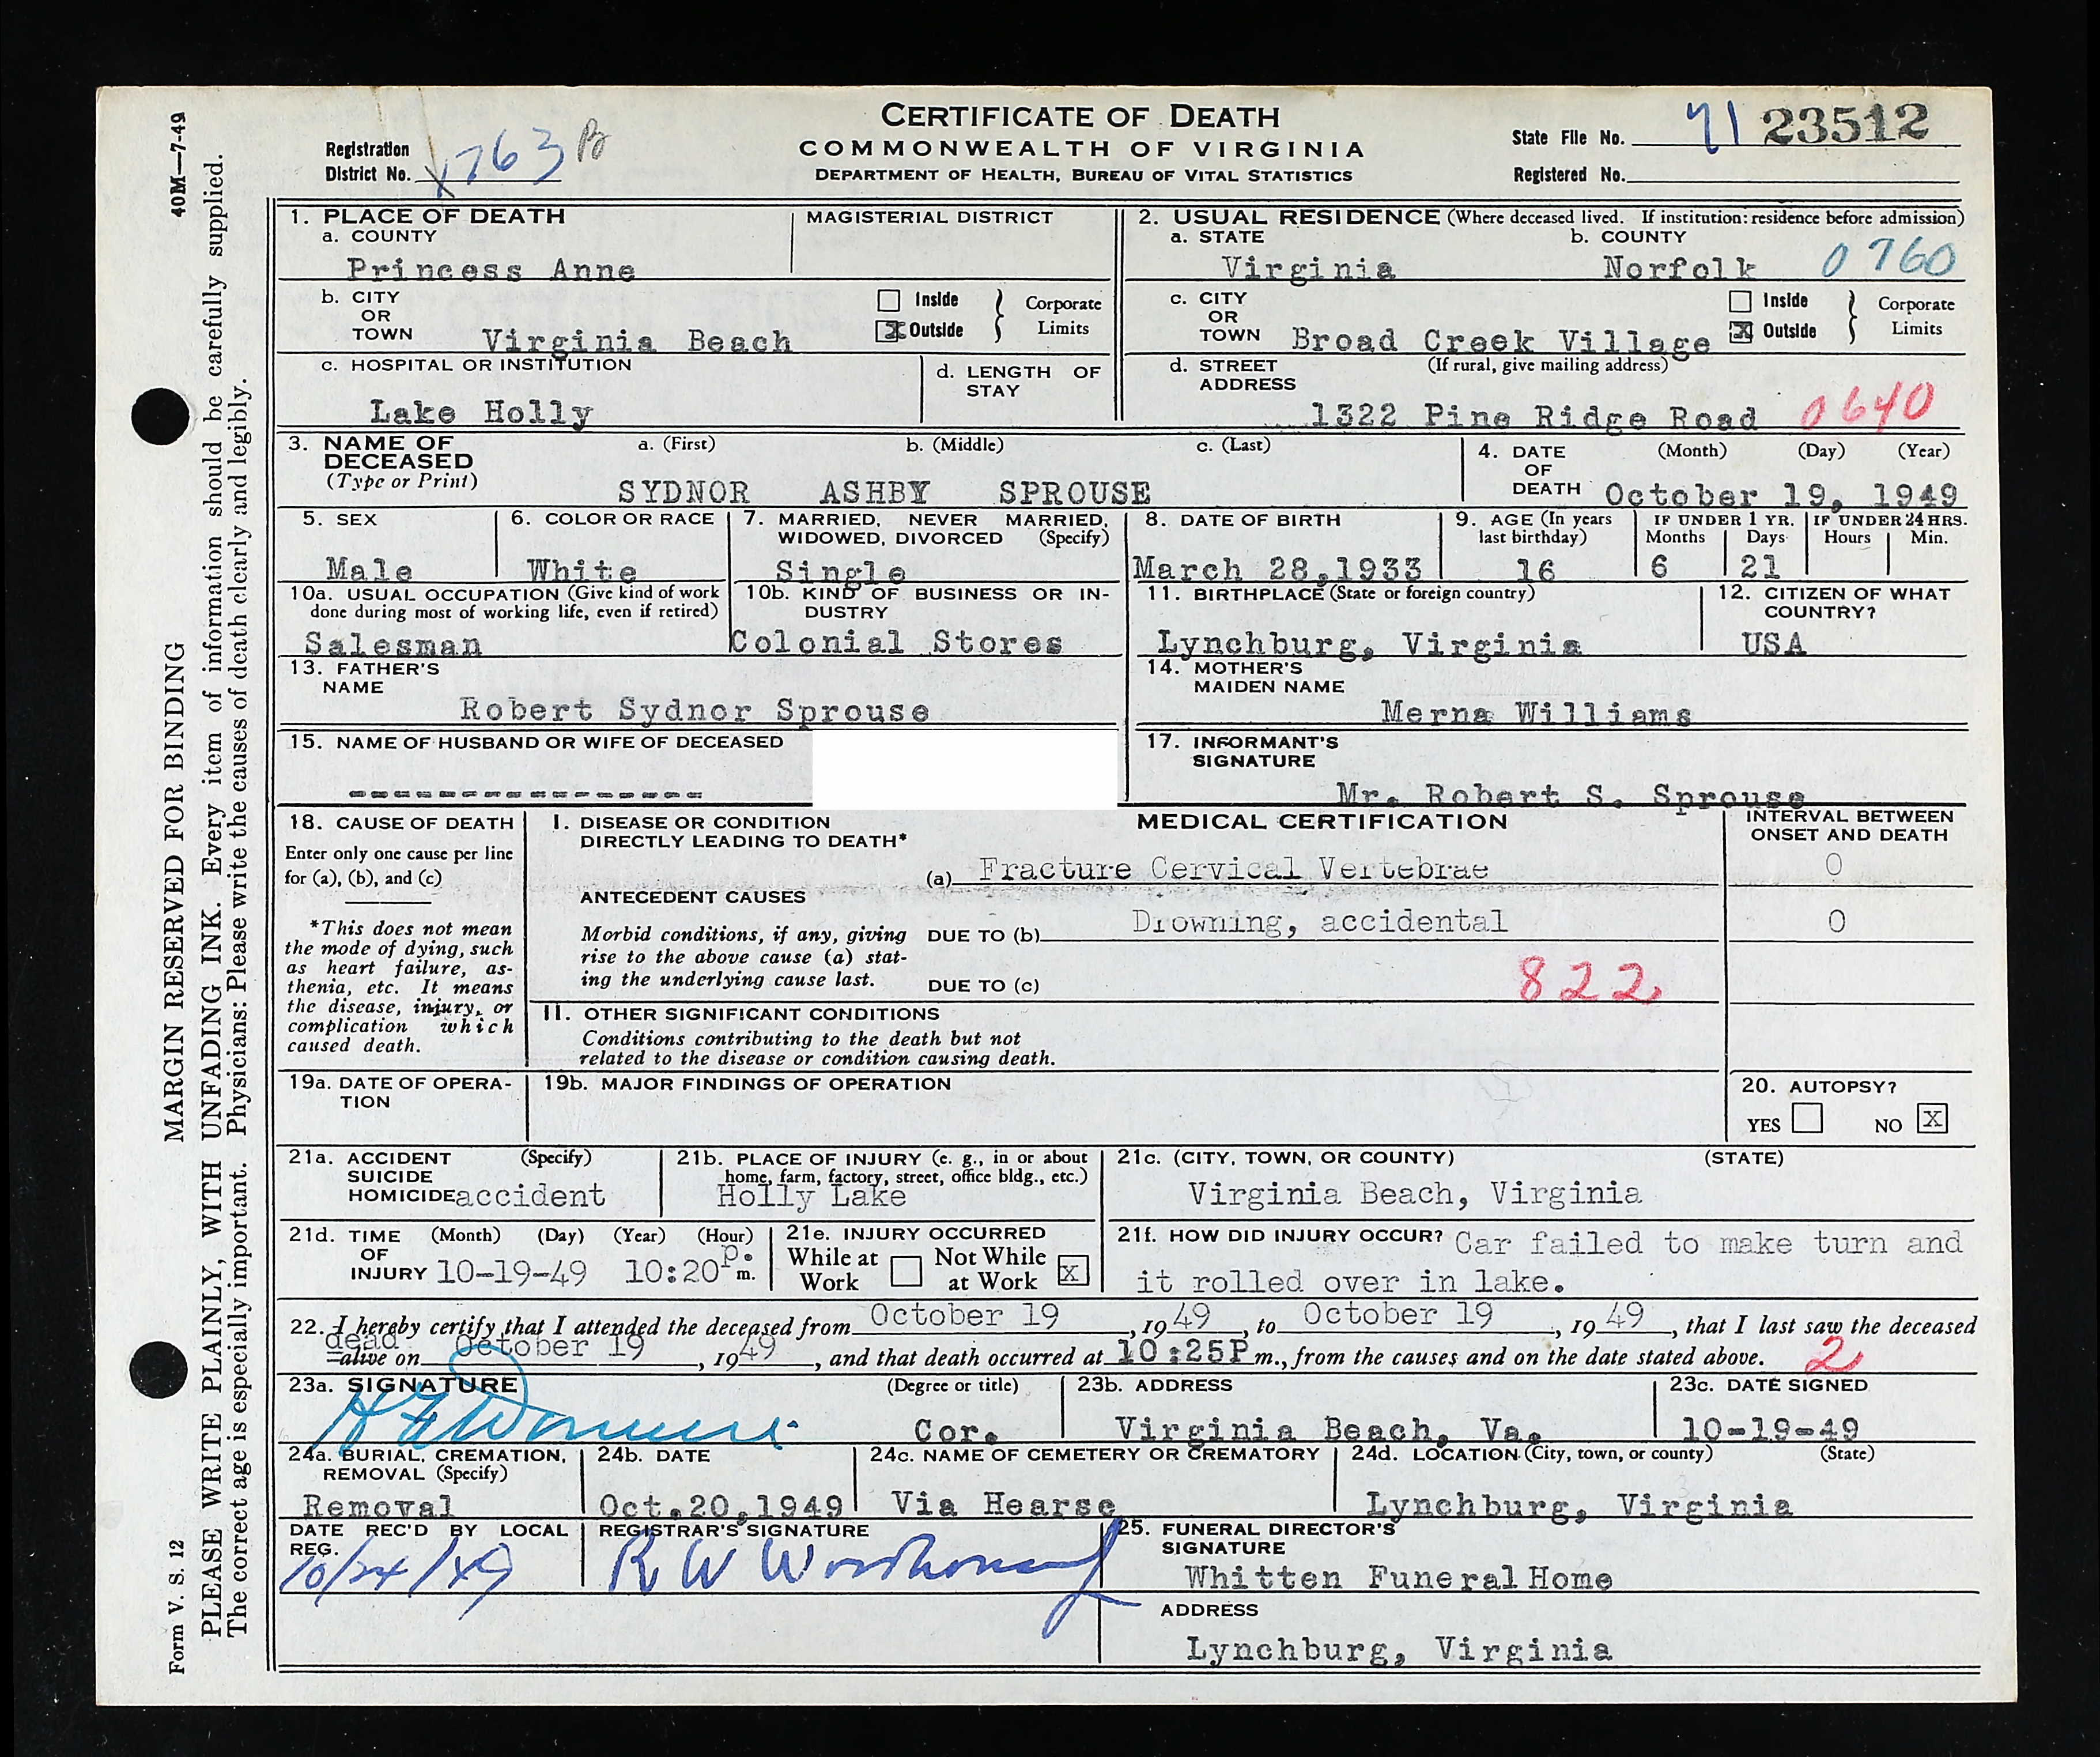 CERTIFICATE OF DEATH
COMMONWEALTH OF VIRGINIA
DEPARTMENT OF HEALTH, BUREAU OF VITAL STATISTICS
Registration
District No. 1763
State File No. 71 23512
Registered No.
40M—7-49
MARGIN RESERVED FOR BINDING
PLEASE WRITE PLAINLY, WITH UNFADING INK. Every item of information should be carefully supplied.
The correct age is especially important. Physicians: Please write the causes of death clearly and legibly.
Form V. S. 12
1. PLACE OF DEATH
a. COUNTY
Princess Anne
MAGISTERIAL DISTRICT
b. CITY
OR
TOWN Virginia Beach
Inside
X Outside
Corporate
Limits
c. HOSPITAL OR INSTITUTION
Lake Holly
d. LENGTH OF
STAY
2. USUAL RESIDENCE (Where deceased lived. If institution: residence before admission)
a. STATE
Virginia
b. COUNTY
Norfolk 0760
c. CITY
OR
TOWN Broad Creek Village
Inside
X Outside
Corporate
Limits
d. STREET
ADDRESS
(If rural, give mailing address)
1322 Pine Ridge Road 0640
3. NAME OF
DECEASED
(Type or Print)
a. (First) b. (Middle) c. (Last)
SYDNOR ASHBY SPROUSE
4. DATE
OF
DEATH
(Month) (Day) (Year)
October 19, 1949
5. SEX
Male
6. COLOR OR RACE
White
7. MARRIED, NEVER MARRIED,
WIDOWED, DIVORCED (Specify)
Single
8. DATE OF BIRTH
March 28,1933
9. AGE (In years
last birthday)
16
IF UNDER 1 YR.
Months Days
6 21
IF UNDER 24 HRS.
Hours Min.
10a. USUAL OCCUPATION (Give kind of work
done during most of working life, even if retired)
Salesman
10b. KIND OF BUSINESS OR IN-
DUSTRY
Colonial Stores
11. BIRTHPLACE (State or foreign country)
Lynchburg, Virginia
12. CITIZEN OF WHAT
COUNTRY?
USA
13. FATHER'S
NAME
Robert Sydnor Sprouse
14. MOTHER'S
MAIDEN NAME
Merna Williams
15. NAME OF HUSBAND OR WIFE OF DECEASED
-----------------
17. INFORMANT'S
SIGNATURE
Mr. Robert S. Sprouse
18. CAUSE OF DEATH
Enter only one cause per line
for (a), (b), and (c)
*This does not mean
the mode of dying, such
as heart failure, as-
thenia, etc. It means
the disease, injury, or
complication which
caused death.
MEDICAL CERTIFICATION
INTERVAL BETWEEN
ONSET AND DEATH
I. DISEASE OR CONDITION
DIRECTLY LEADING TO DEATH*
(a) Fracture Cervical Vertebrae 0
ANTECEDENT CAUSES
Morbid conditions, if any, giving
rise to the above cause (a) stat-
ing the underlying cause last.
DUE TO (b) Drowning, accidental 0
DUE TO (c) 822
II. OTHER SIGNIFICANT CONDITIONS
Conditions contributing to the death but not
related to the disease or condition causing death.
19a. DATE OF OPERA-
TION
19b. MAJOR FINDINGS OF OPERATION
20. AUTOPSY?
YES NO X
21a. ACCIDENT (Specify)
SUICIDE
HOMICIDE accident
21b. PLACE OF INJURY (e. g., in or about
home, farm, factory, street, office bldg., etc.)
Holly Lake
21c. (CITY, TOWN, OR COUNTY) (STATE)
Virginia Beach, Virginia
21d. TIME (Month) (Day) (Year) (Hour)
OF
INJURY 10-19-49 10:20 p. m.
21e. INJURY OCCURRED
While at
Work
Not While
at Work X
21f. HOW DID INJURY OCCUR? Car failed to make turn and
it rolled over in lake.
22. I hereby certify that I attended the deceased from October 19, 1949, to October 19, 1949, that I last saw the deceased
dead
alive on October 19, 1949, and that death occurred at 10:25P m., from the causes and on the date stated above. 2
23a. SIGNATURE (Degree or title)
Cor.
23b. ADDRESS
Virginia Beach, Va.
23c. DATE SIGNED
10-19-49
24a. BURIAL, CREMATION,
REMOVAL (Specify)
Removal
24b. DATE
Oct.20,1949
24c. NAME OF CEMETERY OR CREMATORY
Via Hearse
24d. LOCATION (City, town, or county) (State)
Lynchburg, Virginia
DATE REC'D BY LOCAL
REG.
10/24/49
REGISTRAR'S SIGNATURE
R W
25. FUNERAL DIRECTOR'S
SIGNATURE
Whitten Funeral Home
ADDRESS
Lynchburg, Virginia